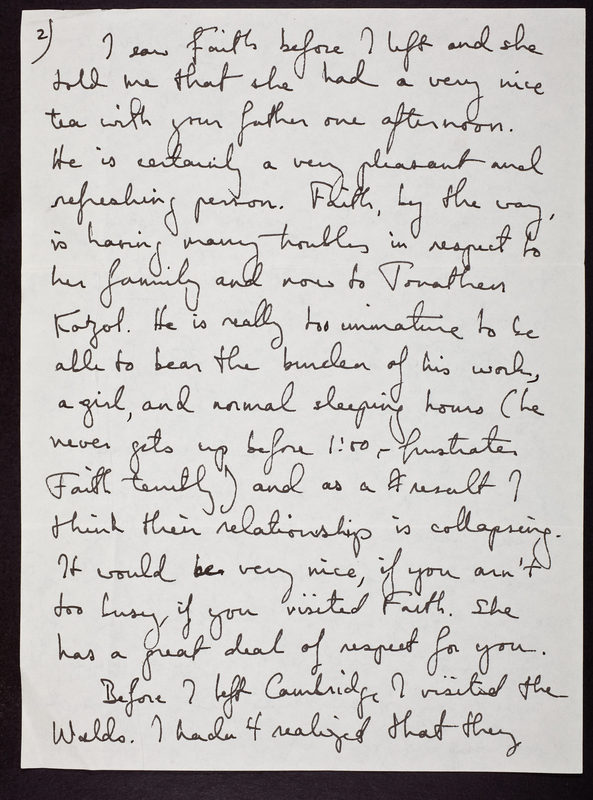 2)
I saw Faith before I left and she
told me that she had a very nice
tea with your father one afternoon.
He is certainly a very pleasant and
refreshing person. Faith, by the way,
is having many troubles in respect to
her family and now to Jonathan
Kozol. He is really too immature to be
able to bear the burden of his work,
a girl, and normal sleeping hours (he
never gets up before 1:00, - frustrates
Faith terribly) and as a result I
think their relationship is collapsing.
It would be very nice, if you arn't
too busy, if you visited Faith. She
has a great deal of respect for you.
Before I left Cambridge I visited the
Welds. I hadn't realized that they